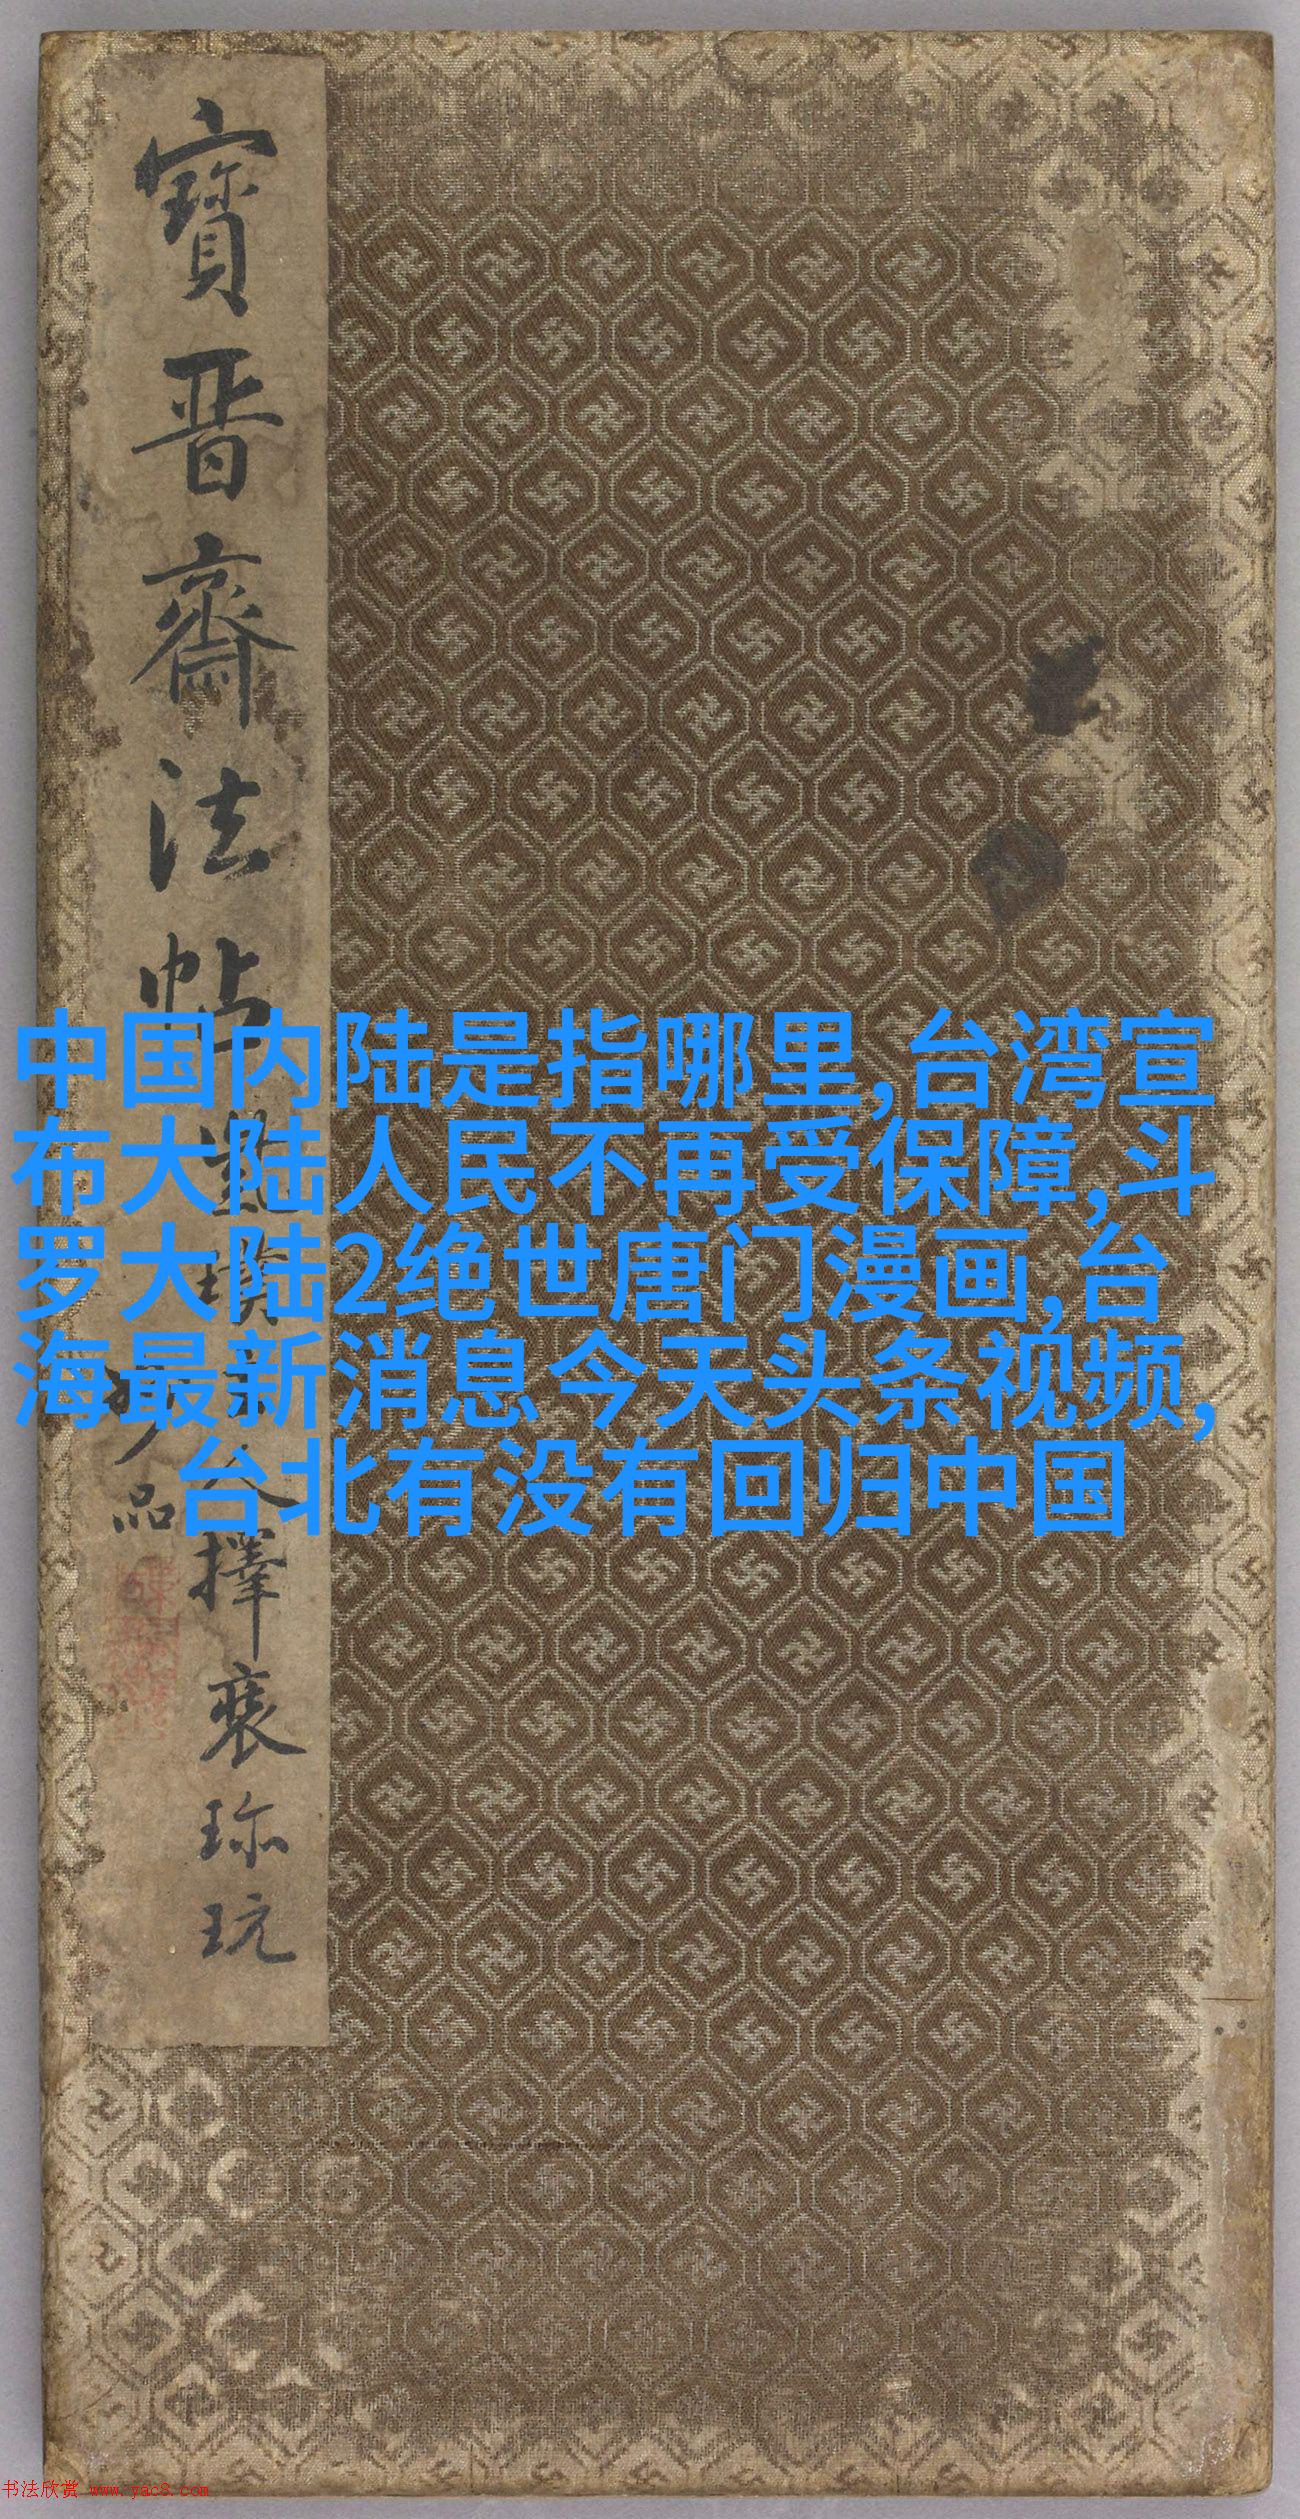 寶晉齋法帖
擇裒珎玩
品
中国内陆是指哪里,台湾宣
布大陆人民不再受保障,斗
罗大陆2绝世唐门漫画,台
海最新消息今天头条视频,
台北有没有回归中国
书法欣赏 www.yac8.com